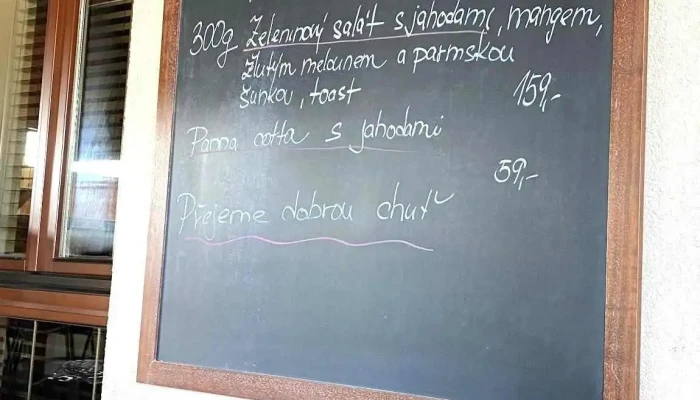 300g Zeleninový salát s jahodami, mangem,
žlutým melounem a parmskou
šunkou, toast
159,-
Panna cotta s jahodami
59,-
Přejeme dobrou chuť